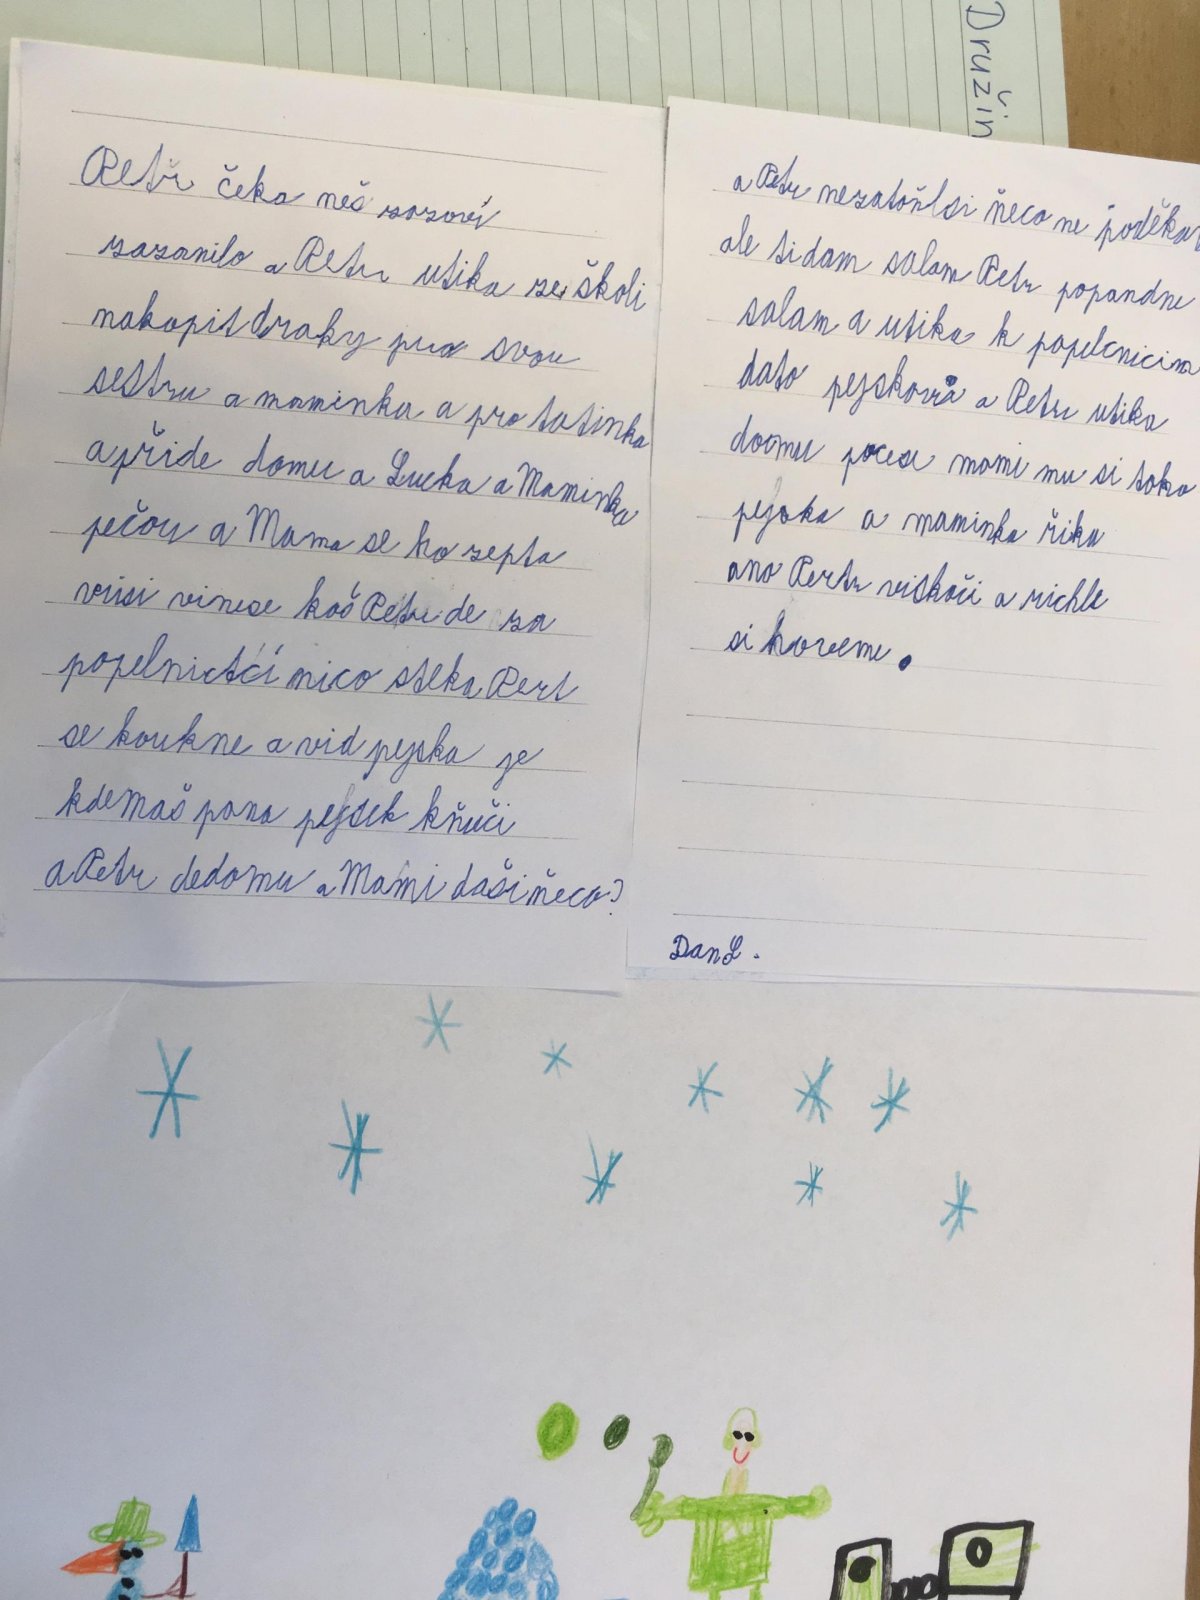 Družin
Petr čeka neš zazoví
zazonilo a Petr utika ze školi
nakopit draky pro svou
sestru a maminka a pro tatinka
a přide domu a Lucka a Maminka
pečou a Mama se ho zepta
vinese koš Petr de za
popelnictčí nico steka Pert
se koukne a vid pejska je
kdemaš pana pejsek kňučí
a Petr dedomu a Mami dašiňeco?
a Petr nezatožilsi ňeco ne poděkoval
ale tidam salam Petr popandne
salam a utika k popelnicim
dato pejskovi a Petr utika
doomu mami mu si toko
pejska a maminka řika
ano Pertr viskoči a richle
si hoveme.
Dan L.